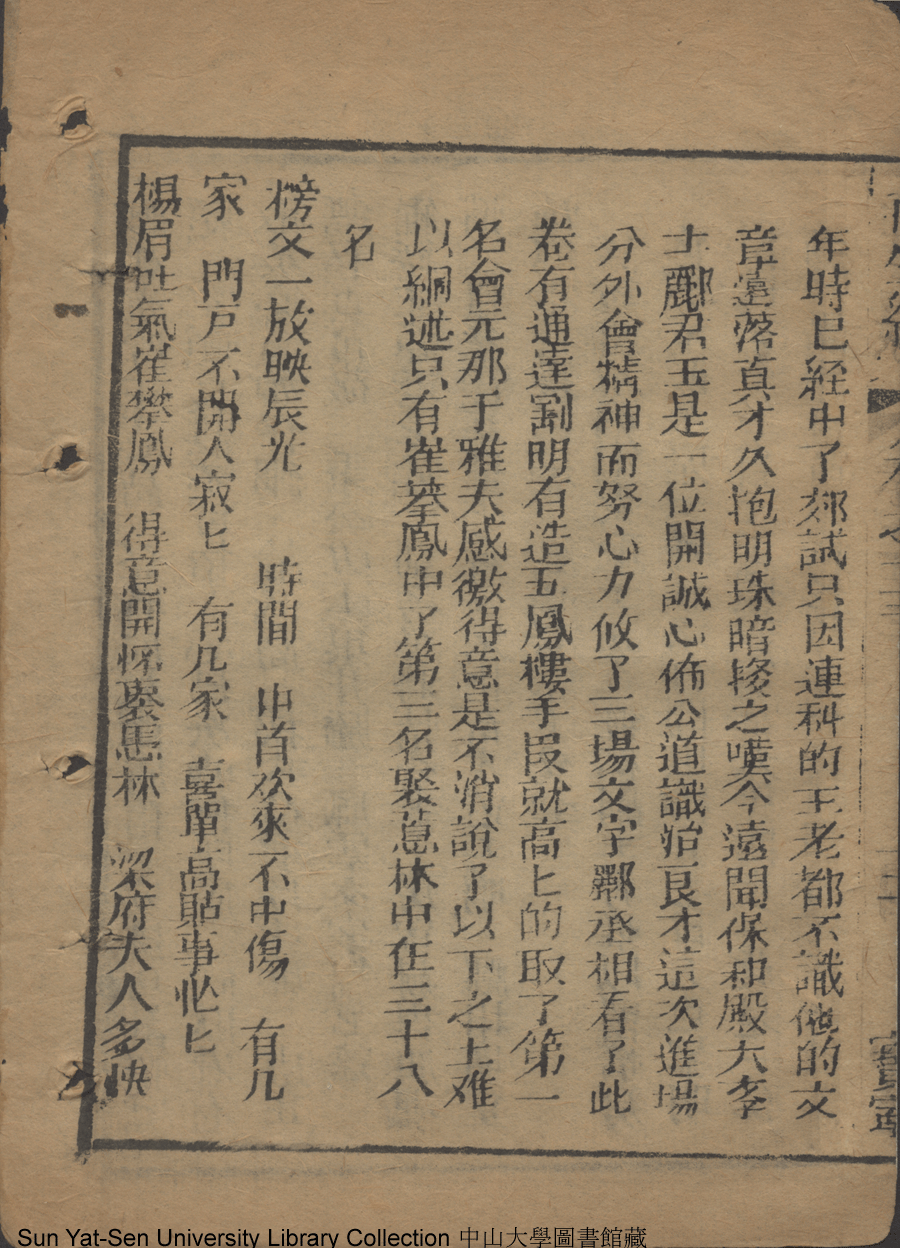 年時已経中了郊試只因連科的王老都不識他的文
章遠落真才久抱明珠暗投之嘆今遠聞保和殿大李
士酈君玉是一位開誠心佈公道識治良才這次進場
分外會精神而努心力攸了三場文字酈丞相看了此
卷有通達劃明有造五鳳樓手段就高匕的取了第一
名會元那于雅夫感激得意是不消說了以下之上难
以細述只有崔攀鳳中了第三名裂蕙林中在三十八
名
榜文一放映辰光 時間 中首欢來不中傷 有几
家 門戸不開人寂匕 有几家 喜單高貼事忙匕
楊眉吐氣崔攀鳳 得意開懷裂馬林 梁府夫人多快
Sun Yat-Sen University Library Collection 中山大學圖書館藏